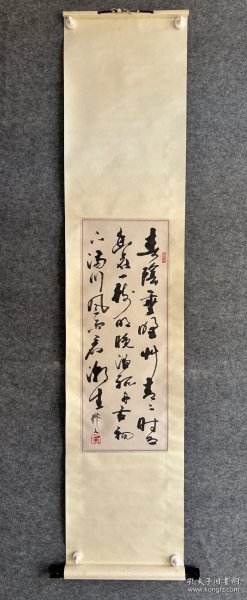 春陰垂野艸青々時有
幽花一樹明晚泊孤舟古祠
下滿川風雨看潮生
孔夫子旧书网
www.kongfz.com